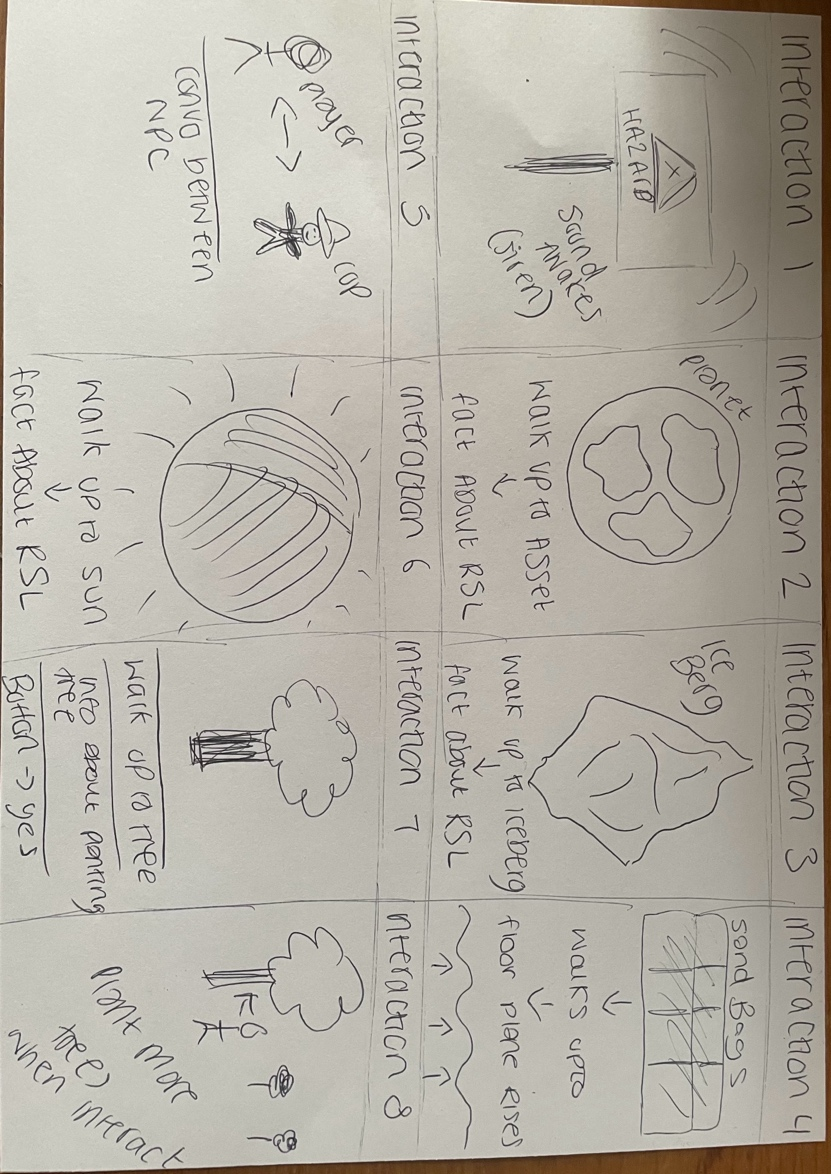 Interaction 1
HAZARD
x
Sound
Awakes
(siren)
Interaction 2
planet
Walk up to Asset
fact About RSL
Interaction 3
ICE
Berg
walk up to iceberg
fact about RSL
Interaction 4
sand Bags
walks upto
floor plane rises
Interaction 5
player
cop
convo between
NPC
Interaction 6
Walk up to sun
fact About RSL
Interaction 7
Walk up to tree
into about planting
tree
Button → yes
Interaction 8
plant more
trees
when interact